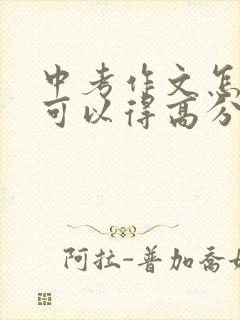 中考作文怎
可以得高分
阿拉-普加乔